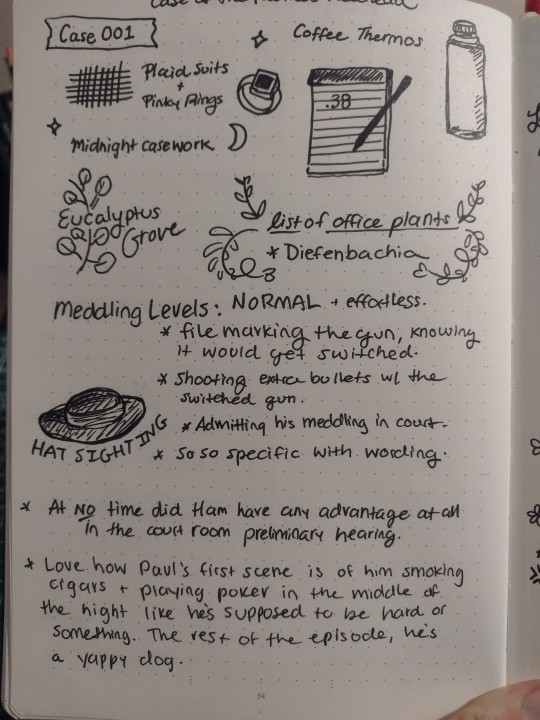 Case of the
Case 001
Coffee Thermos
Plaid Suits
+
Pinky Rings
.38
Midnight casework
Eucalyptus
Grove
list of office plants
* Diefenbachia
Meddling Levels: NORMAL + effortless.
* file marking the gun, knowing
it would get switched.
* Shooting extra bullets w/ the
switched gun.
* Admitting his meddling in court.
HAT SIGHTING
* So so specific with wording.
* At NO time did Ham have any advantage at all
in the court room preliminary hearing.
* Love how Paul's first scene is of him smoking
cigars + playing poker in the middle of
the night like he's supposed to be hard or
something. The rest of the episode, he's
a yappy dog.
34